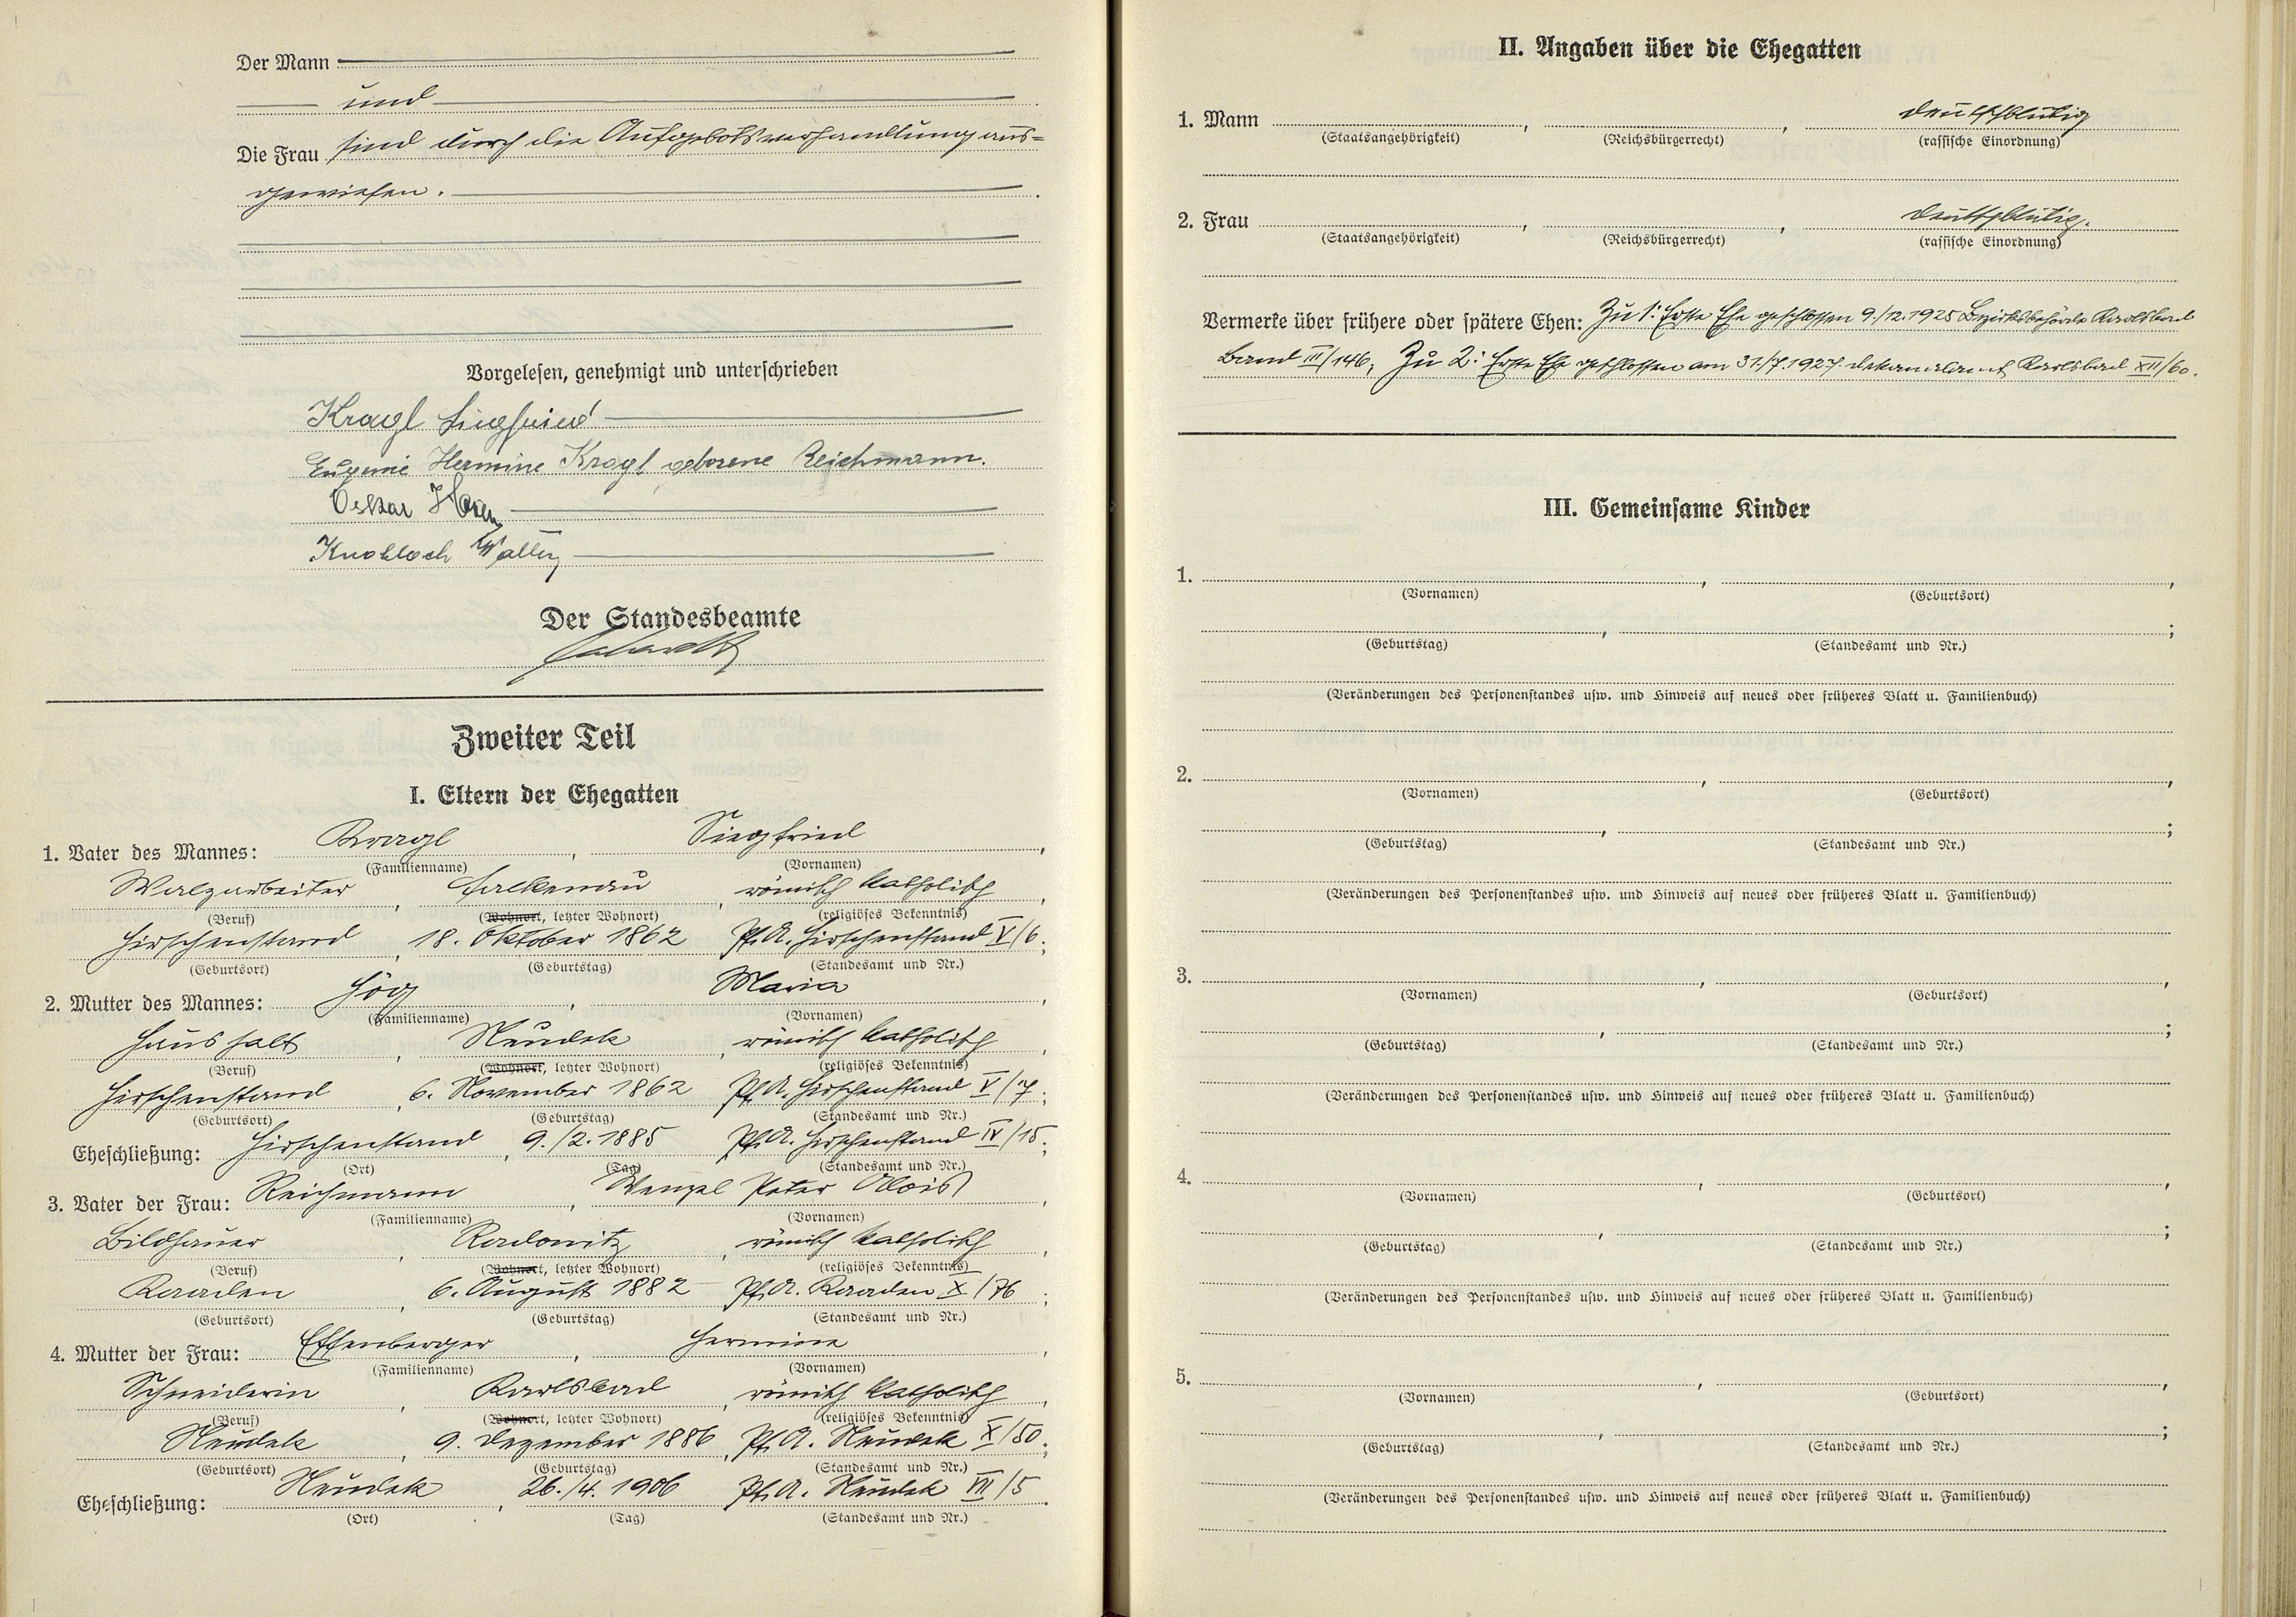 Der Mann
und
Die Frau sind durch die Aufgebotsverhandlung aus-
gewiesen.
Vorgelesen, genehmigt und unterschrieben
Kragl Siegfried
Eugenie Hermine Kragl geborene Reichmann.
Oskar
Knobloch Wally
Der Standesbeamte
Zweiter Teil
I. Eltern der Ehegatten
Kragl Siegfried
1. Vater des Mannes: , ,
(Familienname) (Vornamen)
Walzarbeiter, Falkenau, römisch katholisch,
(Beruf) (Wohnort, letzter Wohnort) (religiöses Bekenntnis)
Hirschenstand, 18. Oktober 1862 Pf.A. Hirschenstand V/6;
(Geburtsort) (Geburtstag) (Standesamt und Nr.)
2. Mutter des Mannes: , Maria,
(Familienname) (Vornamen)
Haushalt, Neudek, römisch katholisch,
(Beruf) (Wohnort, letzter Wohnort) (religiöses Bekenntnis)
Hirschenstand, 6. November 1862 Pf.A. Hirschenstand V/7;
(Geburtsort) (Geburtstag) (Standesamt und Nr.)
Eheschließung: Hirschenstand, 9./2. 1885 Pf.A. Hirschenstand IV/15;
(Ort) (Tag) (Standesamt und Nr.)
3. Vater der Frau: Reichmann, Wenzel Peter Alois,
(Familienname) (Vornamen)
Bildhauer, Radonitz, römisch katholisch,
(Beruf) (Wohnort, letzter Wohnort) (religiöses Bekenntnis)
Kaaden, 6. August 1882 Pf.A. Kaaden X/76;
(Geburtsort) (Geburtstag) (Standesamt und Nr.)
4. Mutter der Frau: Effenberger, Hermine,
(Familienname) (Vornamen)
Schneiderin, Karlsbad, römisch katholisch,
(Beruf) (Wohnort, letzter Wohnort) (religiöses Bekenntnis)
Neudek, 9. Dezember 1886, Pf.A. Neudek X/50;
(Geburtsort) (Geburtstag) (Standesamt und Nr.)
Eheschließung: Neudek, 26./4. 1906 Pf.A. Neudek VII/5.
(Ort) (Tag) (Standesamt und Nr.)
II. Angaben über die Ehegatten
1. Mann , , deutschblütig
(Staatsangehörigkeit) (Reichsbürgerrecht) (rassische Einordnung)
2. Frau , , deutschblütig.
(Staatsangehörigkeit) (Reichsbürgerrecht) (rassische Einordnung)
Vermerke über frühere oder spätere Ehen: Zu 1: Erste Ehe geschlossen 9./12.1925 Bezirksbehörde Karlsbad
Band III/146; Zu 2: Erste Ehe geschlossen am 31./7.1927. Dekanalamt Karlsbad XII/60.
III. Gemeinsame Kinder
1. , ,
(Vornamen) (Geburtsort)
, ;
(Geburtstag) (Standesamt und Nr.)
(Veränderungen des Personenstandes usw. und Hinweis auf neues oder früheres Blatt u. Familienbuch)
2. , ,
(Vornamen) (Geburtsort)
, ;
(Geburtstag) (Standesamt und Nr.)
(Veränderungen des Personenstandes usw. und Hinweis auf neues oder früheres Blatt u. Familienbuch)
3. , ,
(Vornamen) (Geburtsort)
, ;
(Geburtstag) (Standesamt und Nr.)
(Veränderungen des Personenstandes usw. und Hinweis auf neues oder früheres Blatt u. Familienbuch)
4. , ,
(Vornamen) (Geburtsort)
, ;
(Geburtstag) (Standesamt und Nr.)
(Veränderungen des Personenstandes usw. und Hinweis auf neues oder früheres Blatt u. Familienbuch)
5. , ,
(Vornamen) (Geburtsort)
, ;
(Geburtstag) (Standesamt und Nr.)
(Veränderungen des Personenstandes usw. und Hinweis auf neues oder früheres Blatt u. Familienbuch)